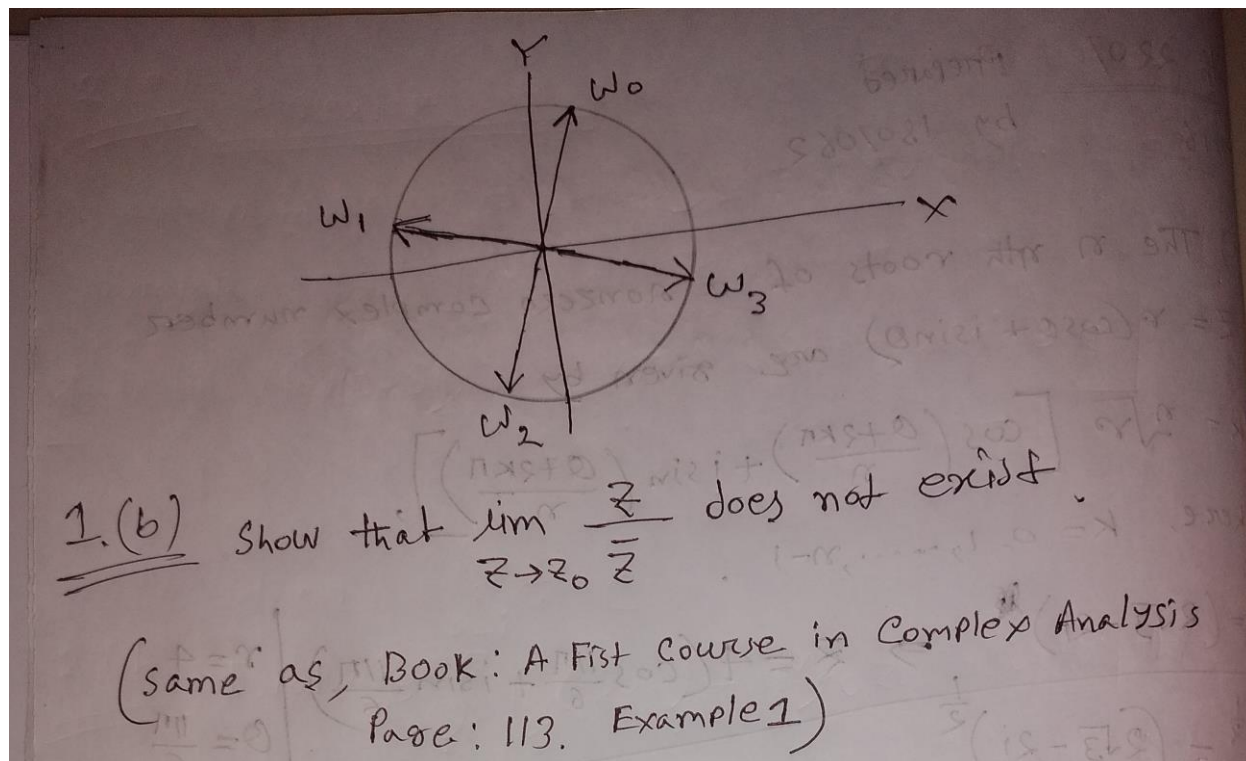 Y
ω0
ω1
X
ω3
ω2
1.(b) Show that lim z/z̄ does not exist.
z→z0
(same as, Book: A Fist Course in Complex Analysis
Page: 113. Example 1)